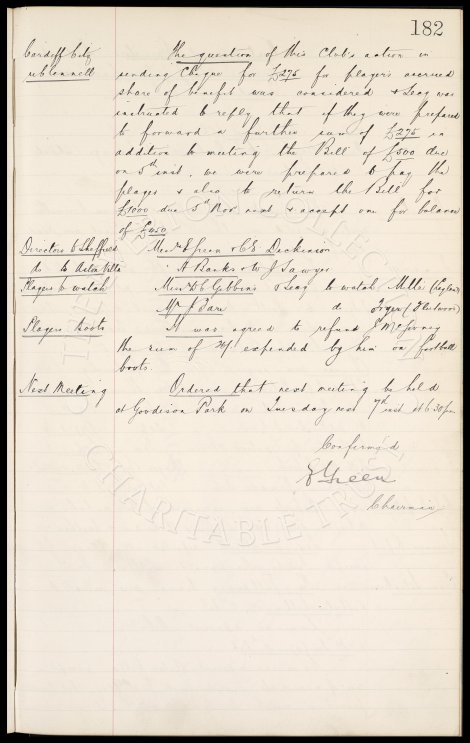 182
Cardiff City The question of this Club's action in
re Clennell sending Cheque for £275 for players accrued
share of benefit was considered & Secy was
instructed to reply that if they were prepared
to forward a further sum of £275 in
addition to meeting the Bill of £500 due
on 5th inst, we were prepared to pay the
player & also to return the Bill for
£1000 due 5th Nov next & accept one for balance
of £450
Directors to Sheffield Messrs E Green & C S Dickinson
do to Aston Villa " A Banks & W J Sawyer
Players to watch Messrs W C Gibbins & Secy to watch
Mr J Fare do (Fleetwood)
Players boots It was agreed to refund J McGivney
the sum of expended by him on football
boots.
Next Meeting Ordered that next meeting be held
at Goodison Park on Tuesday next 7th inst at 6.30 pm
Confirmed
E Green
Chairman
CHARITABLE TRUST